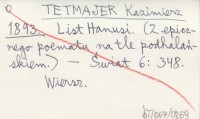 TETMAJER Kazimierz
1893. List Hanusi. (Z epicz-
nego poematu na tle podhalań-
skiem.) — Świat 6: 348.
Wiersz.